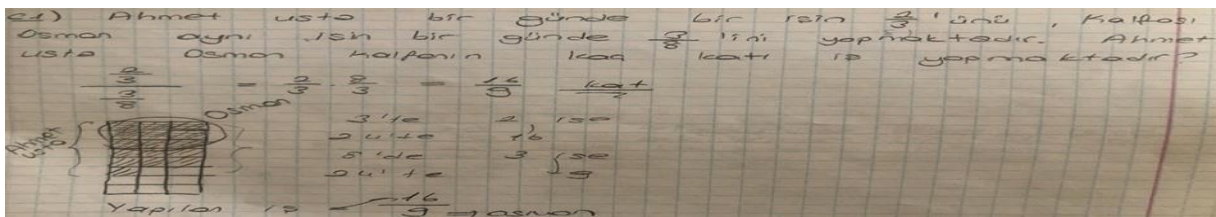 c1) Ahmet usta bir günde bir işin 2/3 'ünü, Kalfası
Osman aynı işin bir günde 3/8 'ini yapmaktadır. Ahmet
usta Osman kalfanın kaç katı iş yapmaktadır?
2/3 / 3/8 = 2/3 . 8/3 = 16/9 kat
Osman
Ahmet usta
3'te 2 ise
24'te 16
8'de 3 ise
24'te 9
Yapılan iş 16/9 → osman